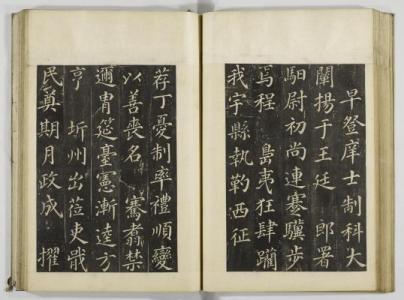 早登庠士制科大
闡揚于王廷 郎署
馹尉初尚連蹇驥步
焉程 島夷狂肆躪
我字縣執靮洒征
荐丁憂制率禮順變
以善喪名 騫翥禁
邇胄筵臺憲漸逵方
亨 圻州出莅吏戢
民奠期月政成 擢